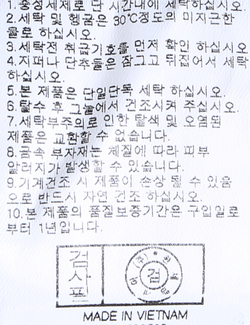 1.중성세제로 단 시간내에 세탁하십시오.
2.세탁 및 헹굼은 30℃정도의 미지근한
물로 하십시오.
3.세탁전 취급기호를 먼저 확인 하십시오
4.지퍼나 단추들은 잠그고 뒤집어서 세탁
하십시오.
5.본 제품은 단일단독 세탁 하십시오.
6.탈수 후 그늘에서 건조시켜 주십시오.
7.세탁부주의로 인한 탈색 및 오염된
제품은 교환할 수 없습니다.
8.금속 부자재는 체질에 따라 피부
알러지가 발생할 수 있습니다.
9.기계건조 시 제품이 손상 될 수 있음
으로 반드시 자연 건조 하십시오.
10.본 제품의 품질보증기간은 구입일로
부터 1년입니다.
검사표
검
MADE IN VIETNAM